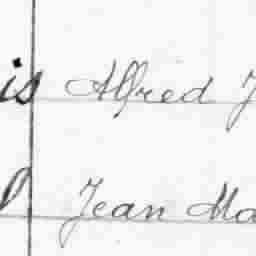 is Alfred J
l Jean Ma